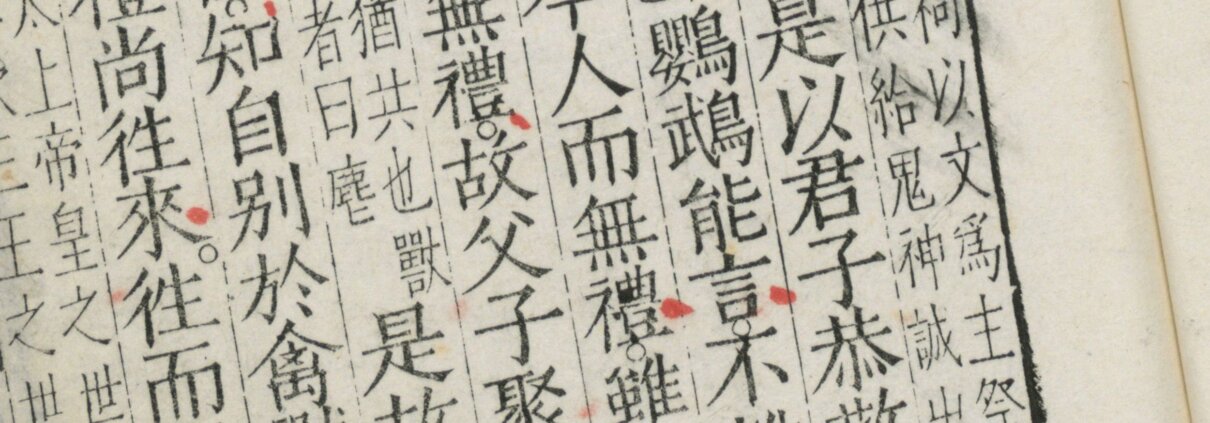 以文為主祭
供給鬼神誠出
是以君子恭敬
鸚鵡能言。不
人而無禮。雖
無禮。故父子聚
猶共也獸
者曰麀
是故
知自别於禽獸
禮尚徃來。徃而
太上帝皇之世
三王之世